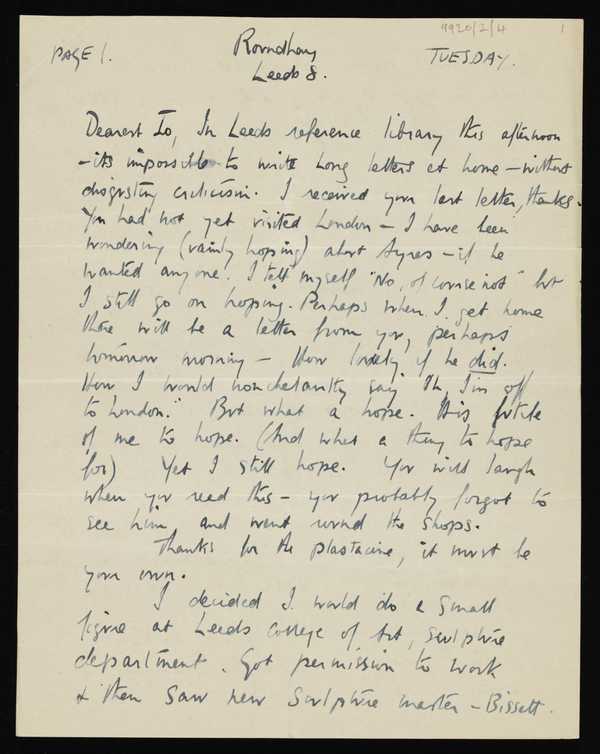 9920/2/4 1
PAGE 1. Roundhay TUESDAY.
Leeds 8.
Dearest Jo, In Leeds reference library this afternoon
– its impossible to write long letters at home – without
disgusting criticism. I received your last letter, thanks.
You had not yet visited London – I have been
wondering (vainly hoping) about Ayres – if he
wanted anyone. I tell myself "No, of course not" but
I still go on hoping. Perhaps when I get home
there will be a letter from you, perhaps
tomorrow morning – How lovely if he did.
How I would nonchalantly say "Oh, I'm off
to London." But what a hope. It is futile
of me to hope. (And what a thing to hope
for) Yet I still hope. You will laugh
when you read this – you probably forgot to
see him and went round the shops.
Thanks for the plastacine, it must be
your own.
I decided I would do a small
figure at Leeds College of Art, sculpture
department. Got permission to work
& then saw new sculpture master – Bissett.